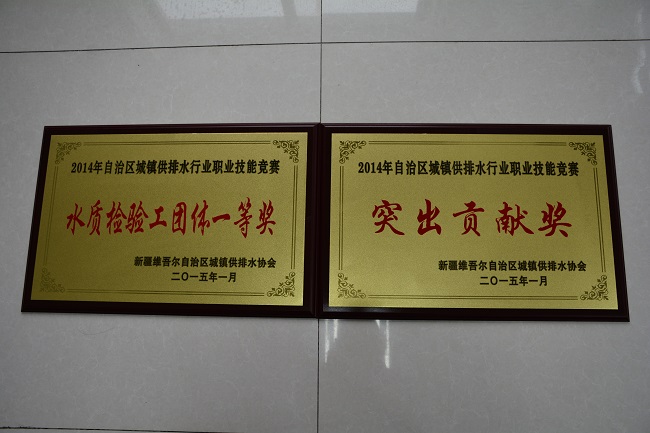 2014年自治区城镇供排水行业职业技能竞赛
水质检验工团体一等奖
新疆维吾尔自治区城镇供排水协会
二〇一五年一月
2014年自治区城镇供排水行业职业技能竞赛
突出贡献奖
新疆维吾尔自治区城镇供排水协会
二〇一五年一月